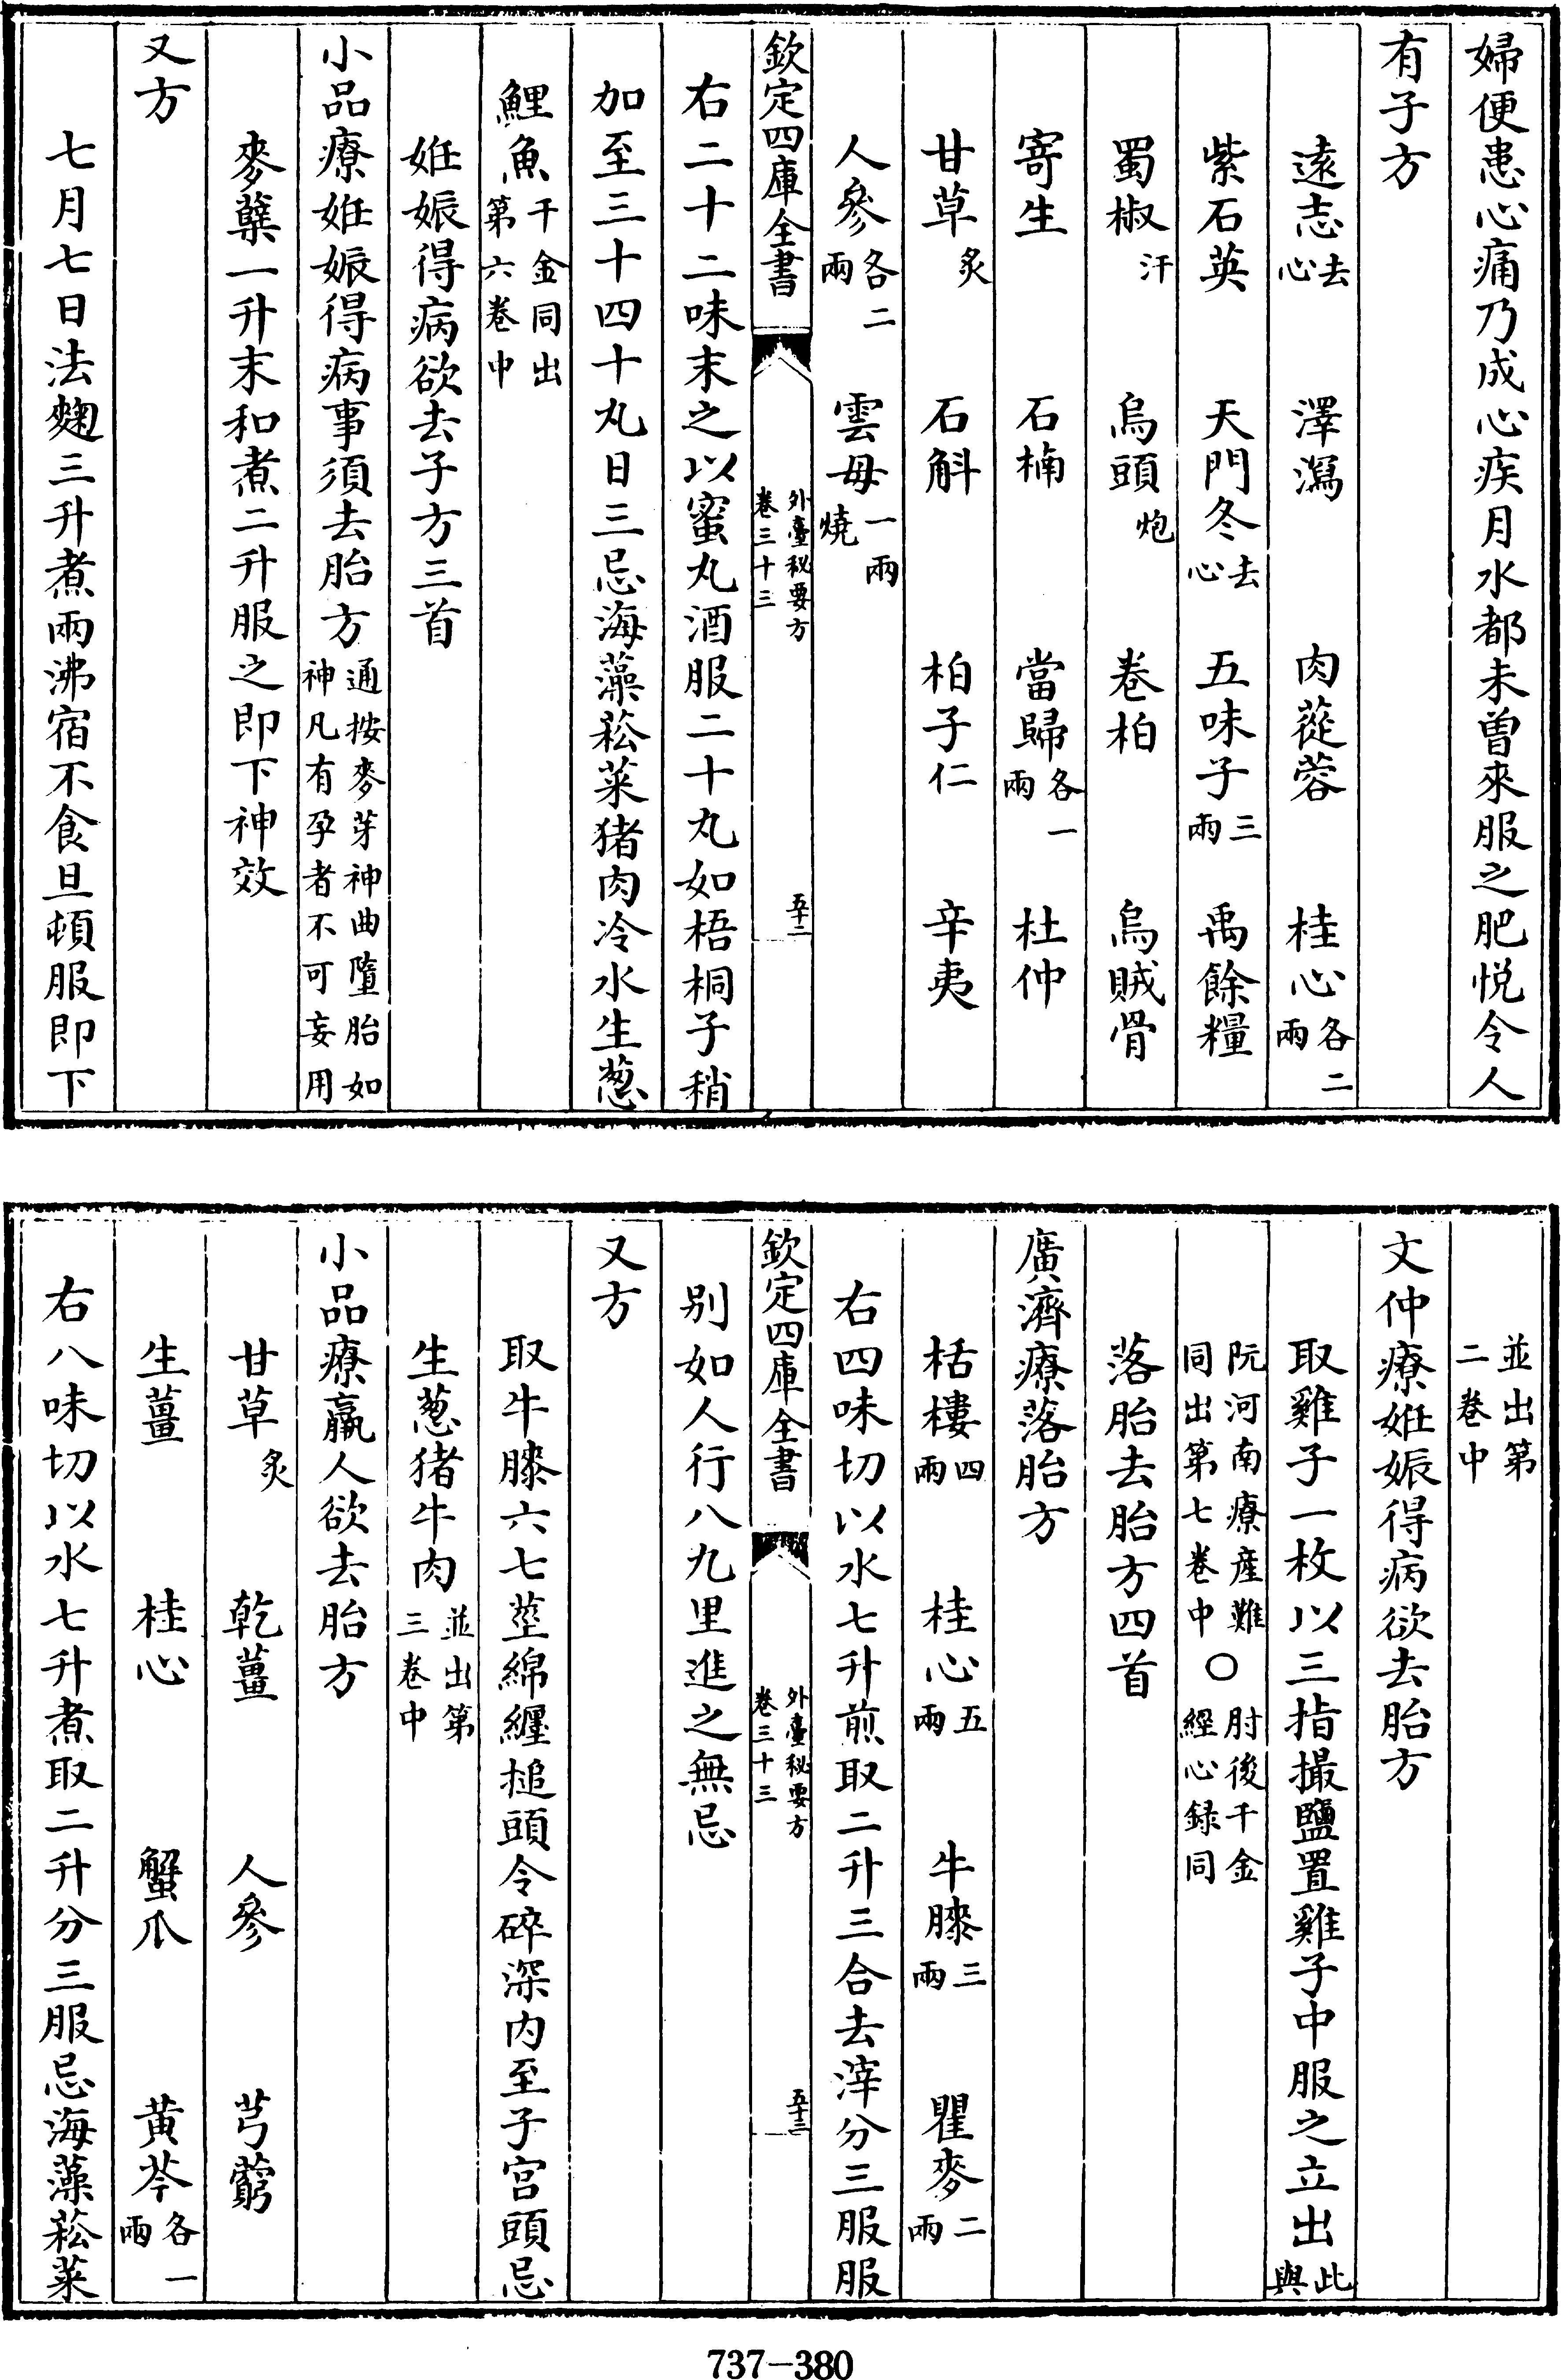 婦便患心痛乃成心疾月水都未曽來服之肥悦令人
有子方
遠志去心 澤瀉 肉蓯蓉 桂心各二兩
紫石英 天門冬去心 五味子三兩 禹餘糧
蜀椒汗 烏頭炮 卷柏 烏賊骨
寄生 石楠 當歸各一兩 杜仲
甘草炙 石斛 柏子仁 辛夷
人參各二兩 雲母一兩燒
欽定四庫全書 外臺秘要方卷三十三 五十二
右二十二味末之以蜜丸酒服二十丸如梧桐子稍
加至三十四十丸日三忌海藻菘菜猪肉冷水生葱
鯉魚千金同出第六卷中
姙娠得病欲去子方三首
小品療姙娠得病事須去胎方通按麥芽神曲墮胎如神凡有孕者不可妄用
麥蘖一升末和煮二升服之即下神效
又方
七月七日法麴三升煮兩沸宿不食旦頓服即下
並出第二卷中
文仲療姙娠得病欲去胎方
取雞子一枚以三指撮鹽置雞子中服之立出此與
阮河南療産難同出第七卷中〇肘後千金經心録同
落胎去胎方四首
廣濟療落胎方
栝樓四兩 桂心五兩 牛膝三兩 瞿麥二兩
右四味切以水七升煎取二升三合去滓分三服服
欽定四庫全書 外臺秘要方卷三十三 五十三
别如人行八九里進之無忌
又方
取牛膝六七莖綿纒搥頭令碎深内至子宫頭忌
生葱猪牛肉並出第三卷中
小品療羸人欲去胎方
甘草炙 乾薑 人參 芎藭
生薑 桂心 蟹爪 黄芩各一兩
右八味切以水七升煮取二升分三服忌海藻菘菜
737-380